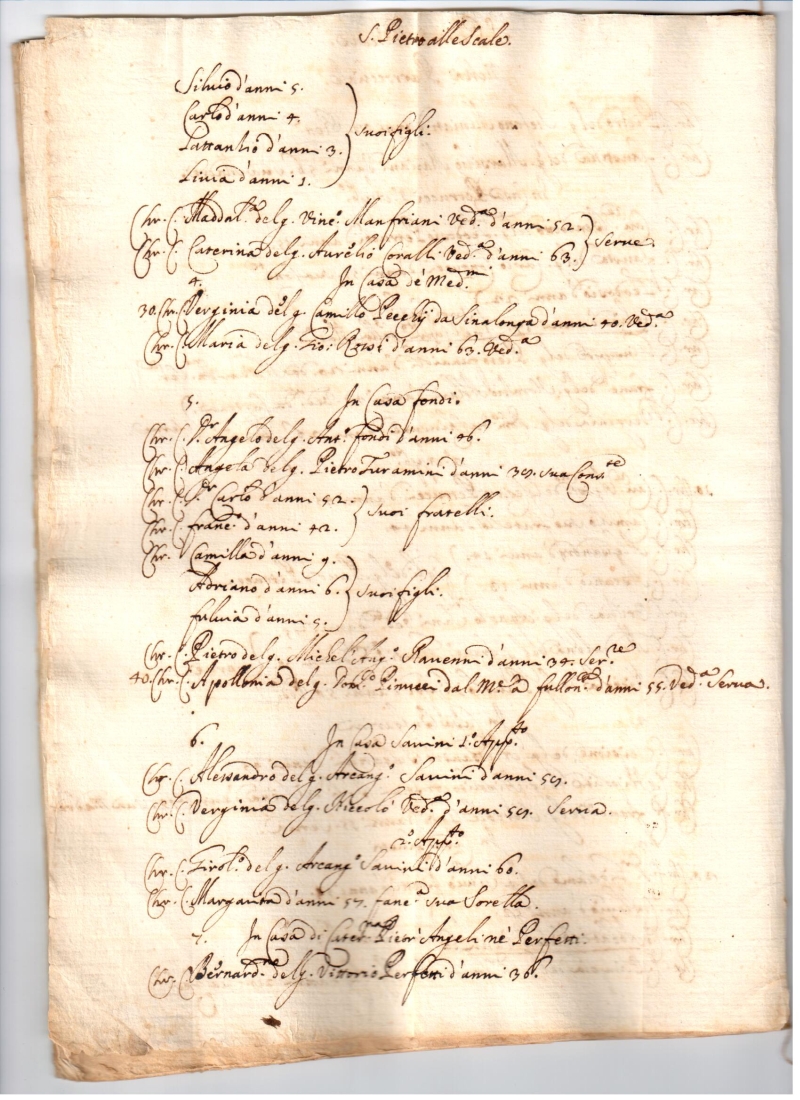 S. Pietro alle Scale.
Silvio d'anni 5.
Carlo d'anni 4.
Lattantio d'anni 3.
suoi figli.
Livia d'anni 1.
Chr. C. Maddal.ª del q. Vinc.º Manfriani Ved.ª d'anni 52.
Chr. C. Caterina del q. Aurelio Coralli Ved.ª d'anni 63.
Serve.
4. In Casa de' Med.mi
30. Chr. C. Verginia del q. Camillo Pecchij da Sinalonga d'anni 40. Ved.ª
Chr. C. Maria del q. Gio: Rossi d'anni 63. Ved.ª
5. In Casa fondi.
Chr. C. S.r Angelo del q. Ant.º fondi d'anni 46.
Chr. C. Angela del q. Pietro Turamini d'anni 39. sua Cons.te
Chr. C. S.r Carlo d'anni 52.
Chr. C. franc.º d'anni 42.
suoi fratelli.
Chr. Camilla d'anni 9.
Adriano d'anni 6.
suoi figli.
fulvia d'anni 5.
Chr. C. Pietro del q. Michel'Ang.º Ravenni d'anni 34. Ser.re
40. Chr. C. Apollonia del q. Dom.º Pinucci dal M.te a fullon.ª d'anni 55. Ved.ª Serva.
6. In Casa Savini 1.º App.to
Chr. C. Alessandro del q. Arcang.º Savini d'anni 59.
Chr. C. Verginia del q. Niccolò Ved.ª d'anni 59. Serva.
2.º App.to
Chr. C. Girol.º del q. Arcang.º Savini d'anni 60.
Chr. C. Margarita d'anni 57. fanc.ª sua Sorella.
7. In Casa di Cater.na Pieri Angeli né Perfetti.
Chr. C. Bernard.no del q. Vittorio Perfetti d'anni 36.